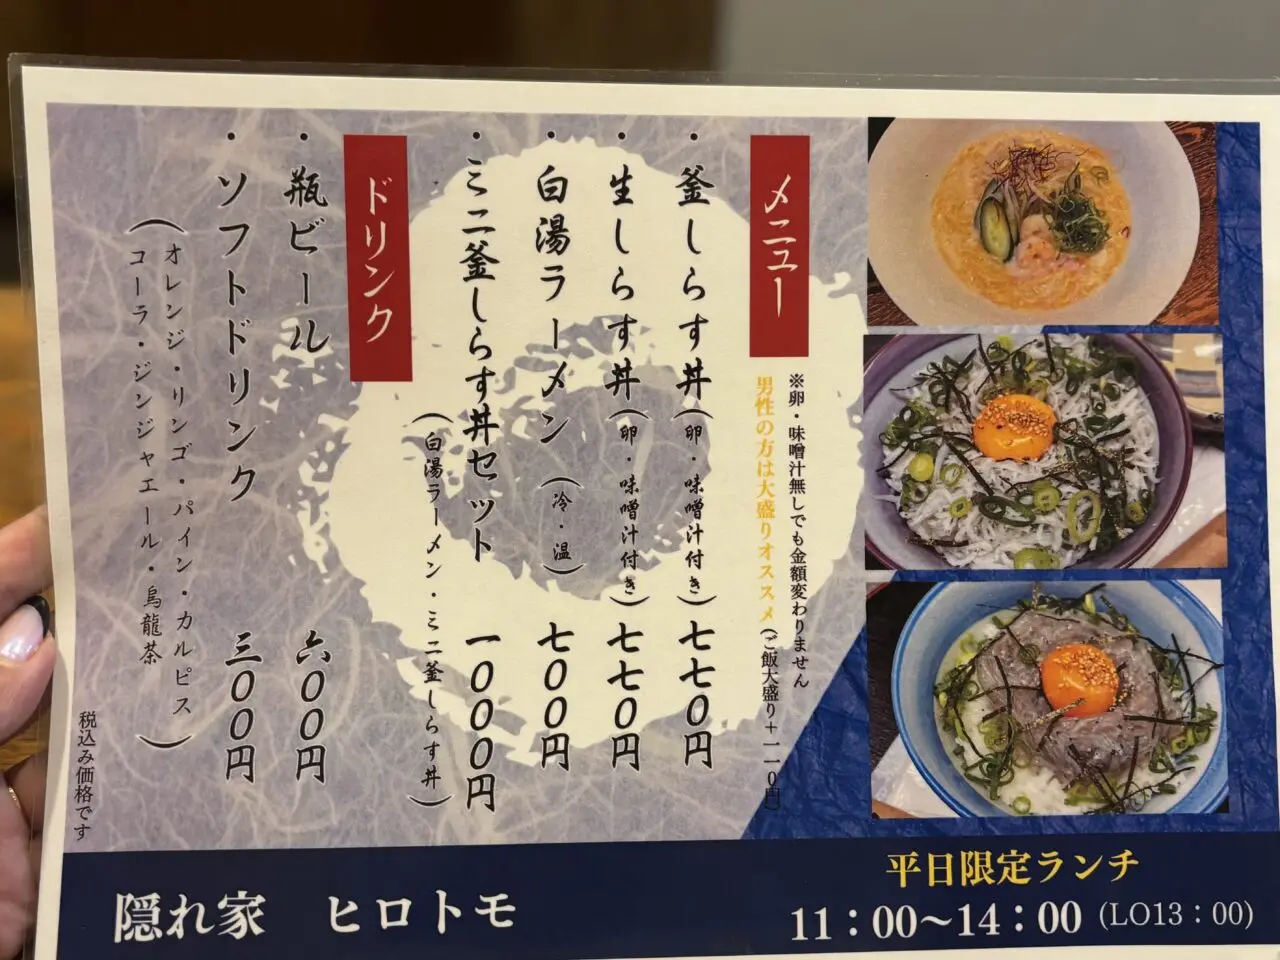 メニュー
※卵・味噌汁無しでも金額変わりません
男性の方は大盛りオススメ(ご飯大盛り+一一0円)
・釜しらす丼(卵・味噌汁付き)七七0円
・生しらす丼(卵・味噌汁付き)七七0円
・白湯ラーメン(冷・温)七00円
・ミニ釜しらす丼セット 一000円
(白湯ラーメン・ミニ釜しらす丼)
ドリンク
・瓶ビール 六00円
・ソフトドリンク 三00円
(オレンジ・リンゴ・パイン・カルピス
コーラ・ジンジャエール・烏龍茶)
税込み価格です
隠れ家 ヒロトモ
平日限定ランチ
11:00~14:00(LO13:00)